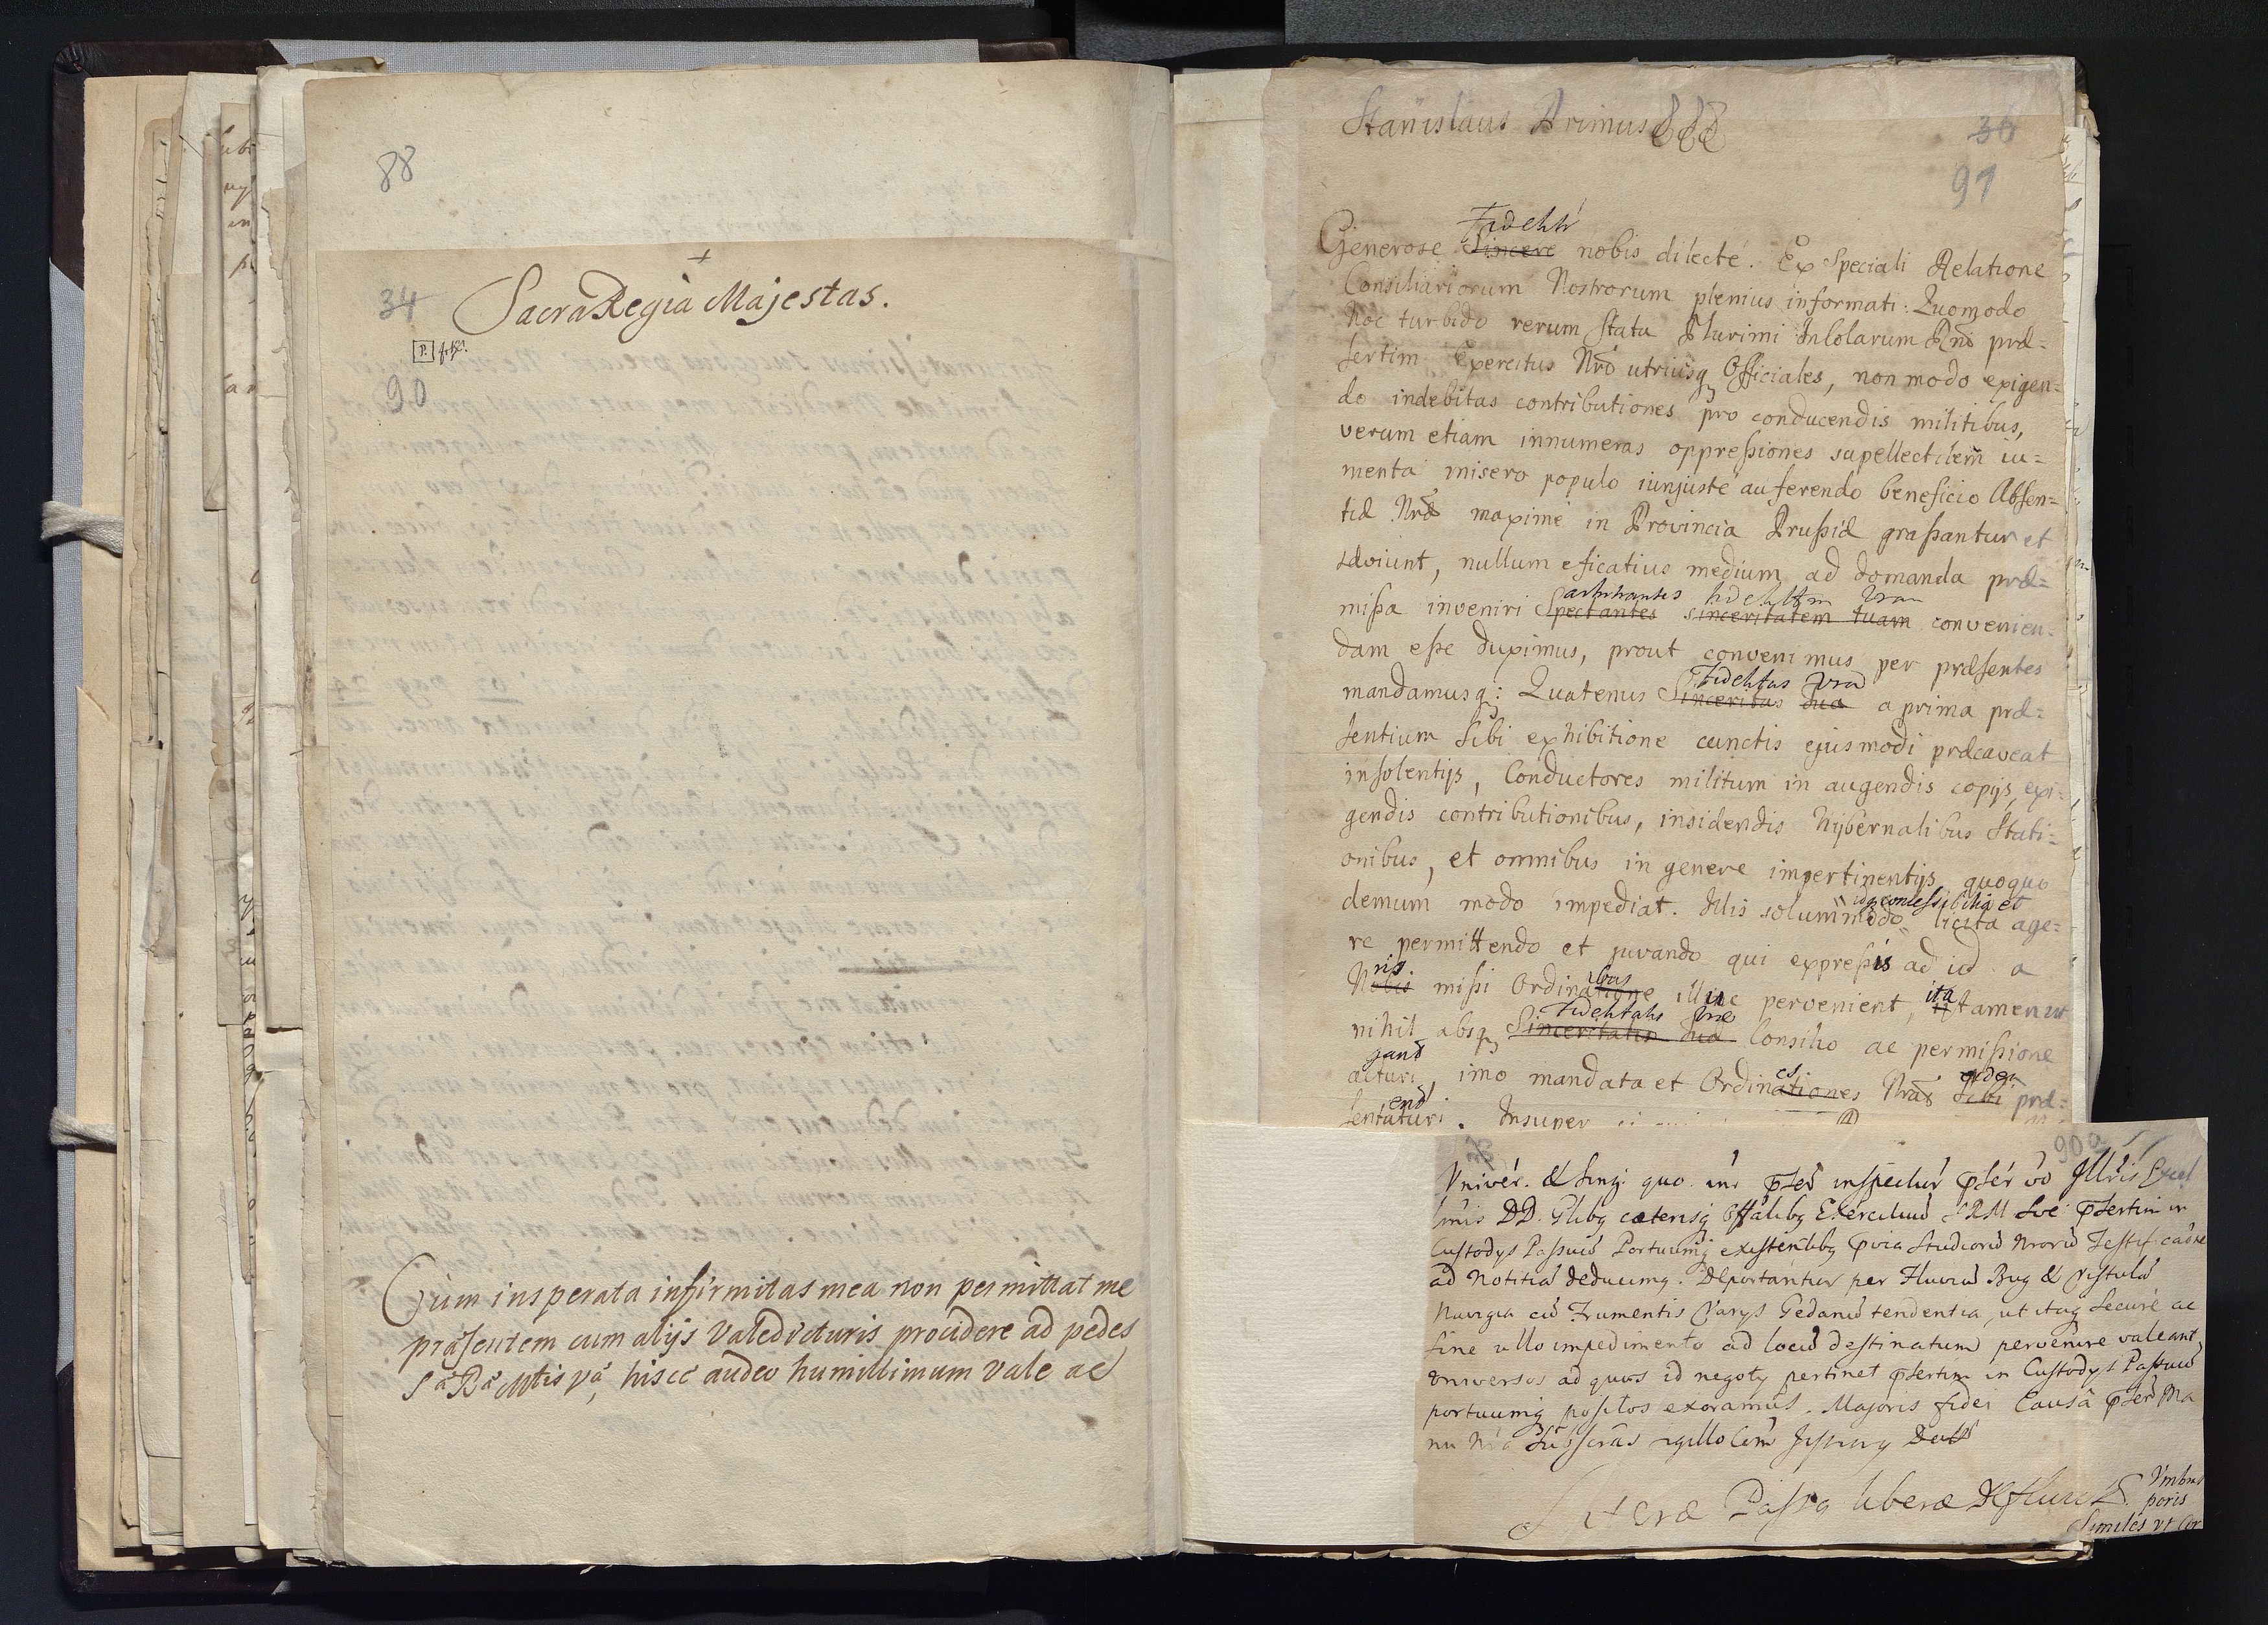 88
34
Sacra Regia Majestas.
90
Cum insperata infirmitas mea non permittat me
præsentem cum alijs valedicturis procidere ad pedes
Sæ Ræ Mtis væ, hisce audeo humillimum vale ac
Stanislaus Primus
36
91
Fidelitr
Generose Sincere nobis dilecte. Ex Speciali Relatione
Consiliariorum Nostrorum plenius informati: Quomodo
hoc turbido rerum statu Plurimi Incolarum Rni præ=
sertim Exercitus Nri utriusq Officiales, non modo exigen=
do indebitas contributiones pro conducendis militibus,
verum etiam innumeras oppressiones supellectilem iu=
menta misero populo iunjuste auferendo beneficio Absen=
tiæ Nræ maxime in Provincia Prussiæ grassantur et
sæviunt, nullum eficatius medium ad domanda præ=
missa inveniri Spectantes sinceritatem tuam convenien=
dam esse duximus, prout convenimus per præsentes
Fidelitas Vra
mandamusq: Quatenus Sinceritas tua a prima præ=
sentium sibi exhibitione cunctis ejusmodi præcaveat
insolentijs, Conductores militum in augendis copijs, exi=
gendis contributionibus, insidendis Hybernalibus Stati=
onibus, et omnibus in genere impertinentijs quoquo
demum modo impediat. Illis solummodo licita age=
re permittendo et juvando qui expressis ad id a
Nobis missi Ordinatione illuc pervenient, ita tamen ut
Fidelitatis Vræ
nihil absq Sinceritatis tuæ Consilio ac permissione
acturi, imo mandata et Ordinationes Nras Sibi præ=
sentaturi. Insuper
90a
Univer. & Singi quo. inr pser inspectur pser vo Illris Excel
mis DD. Glibq cæterisq Offalibq Exercituu S R M Sve psertim in
Custodys Passuu Portuumq existentibq
ad notitia deducimq. Deportantur per Fluviu Bug & Vistula
Navigia cu Frumentis Varys Gedanu tendentia, ut itaq secure ac
sine ullo impedimento ad locu destinatum pervenire valeant,
universos ad quos id negoty pertinet psertim in Custodys Passuu
portuumq positos exoramus. Majoris fidei Causa pser Ma
nu
Literæ Passq liberæ
Similes